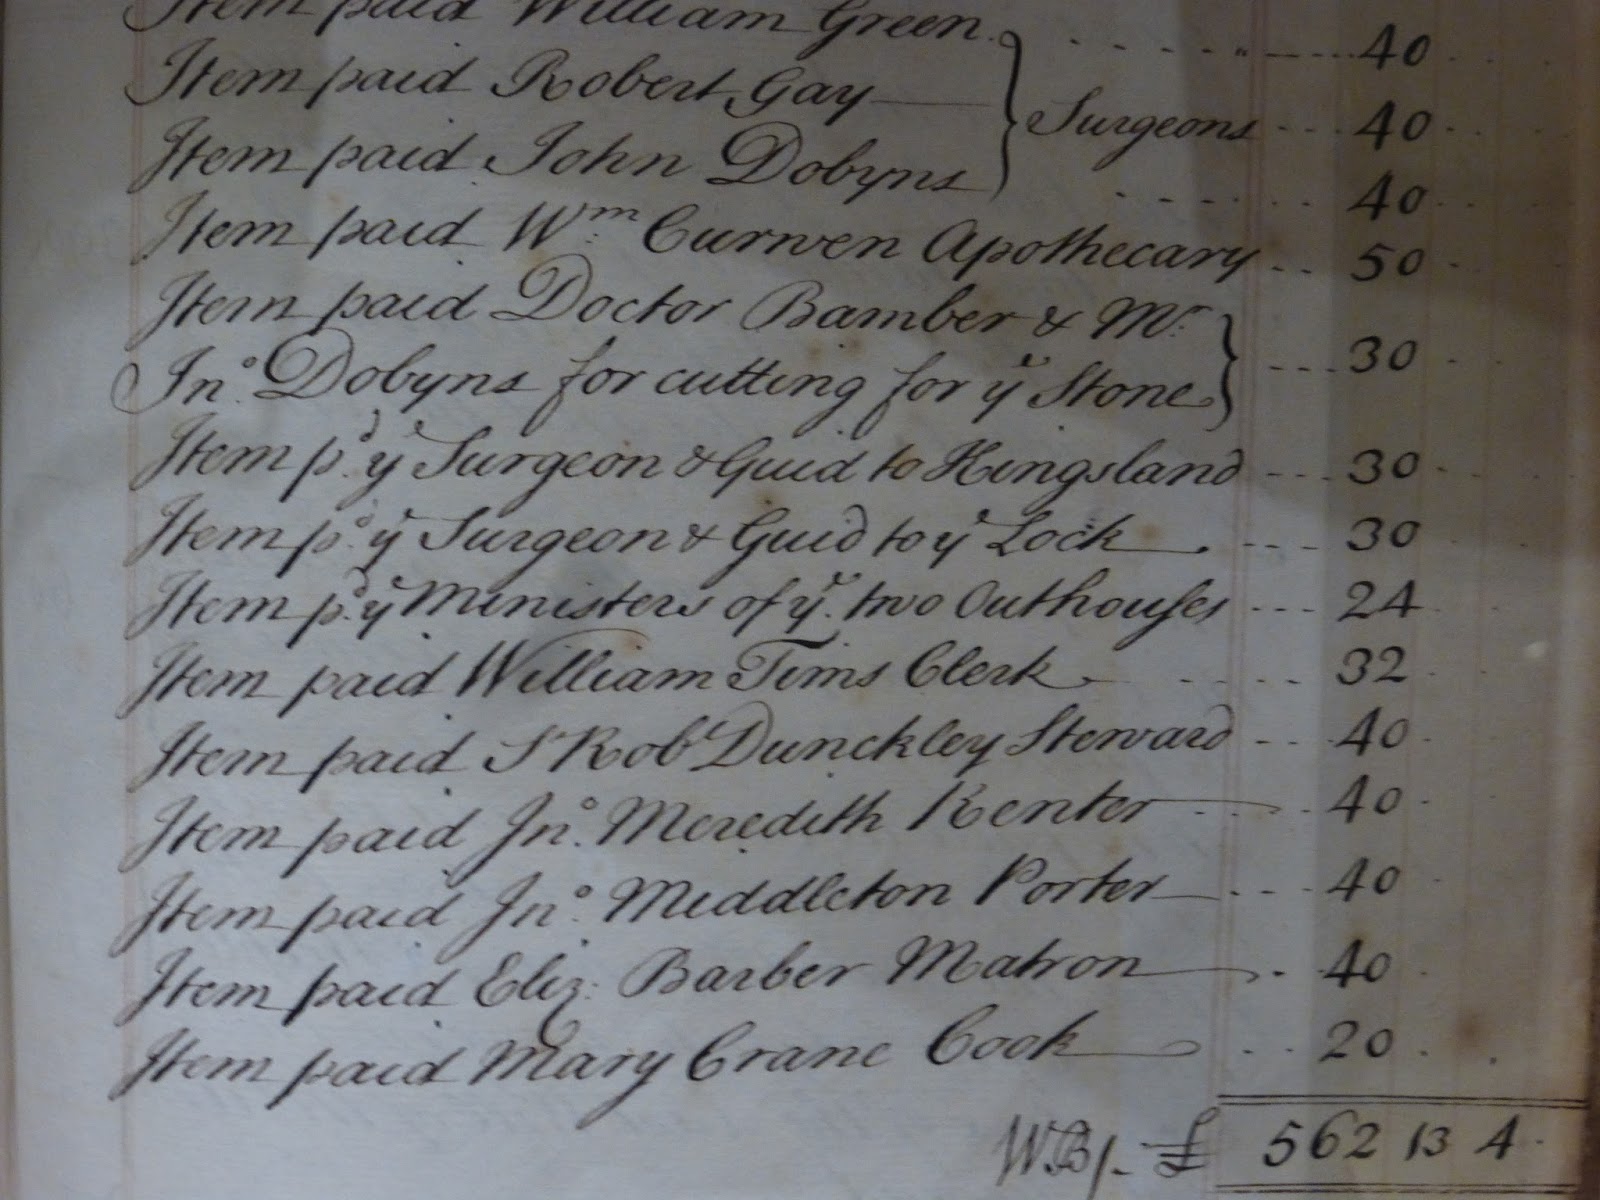 Item paid William Green. - - - - - 40
Item paid Robert Gay } Surgeons - - - 40
Item paid John Dobyns - - - - 40
Item paid Wm. Curwen Apothecary - - 50
Item paid Doctor Bamber & Mr.
Jno. Dobyns for cutting for ye Stone } - - - 30
Item pd. ye Surgeon & Guid to Kingsland - - - 30
Item pd. ye Surgeon & Guid to ye Lock - - - 30
Item pd. ye Ministers of ye two Outhouses - - - 24
Item paid William Tims Clerk - - - - 32
Item paid Sr Robt Dunckley Steward - - - 40
Item paid Jno. Meredith Renter - - - 40
Item paid Jno. Middleton Porter - - - 40
Item paid Eliz: Barber Matron - 40
Item paid Mary Crane Cook - - 20
W.B/. £ 562 13 4